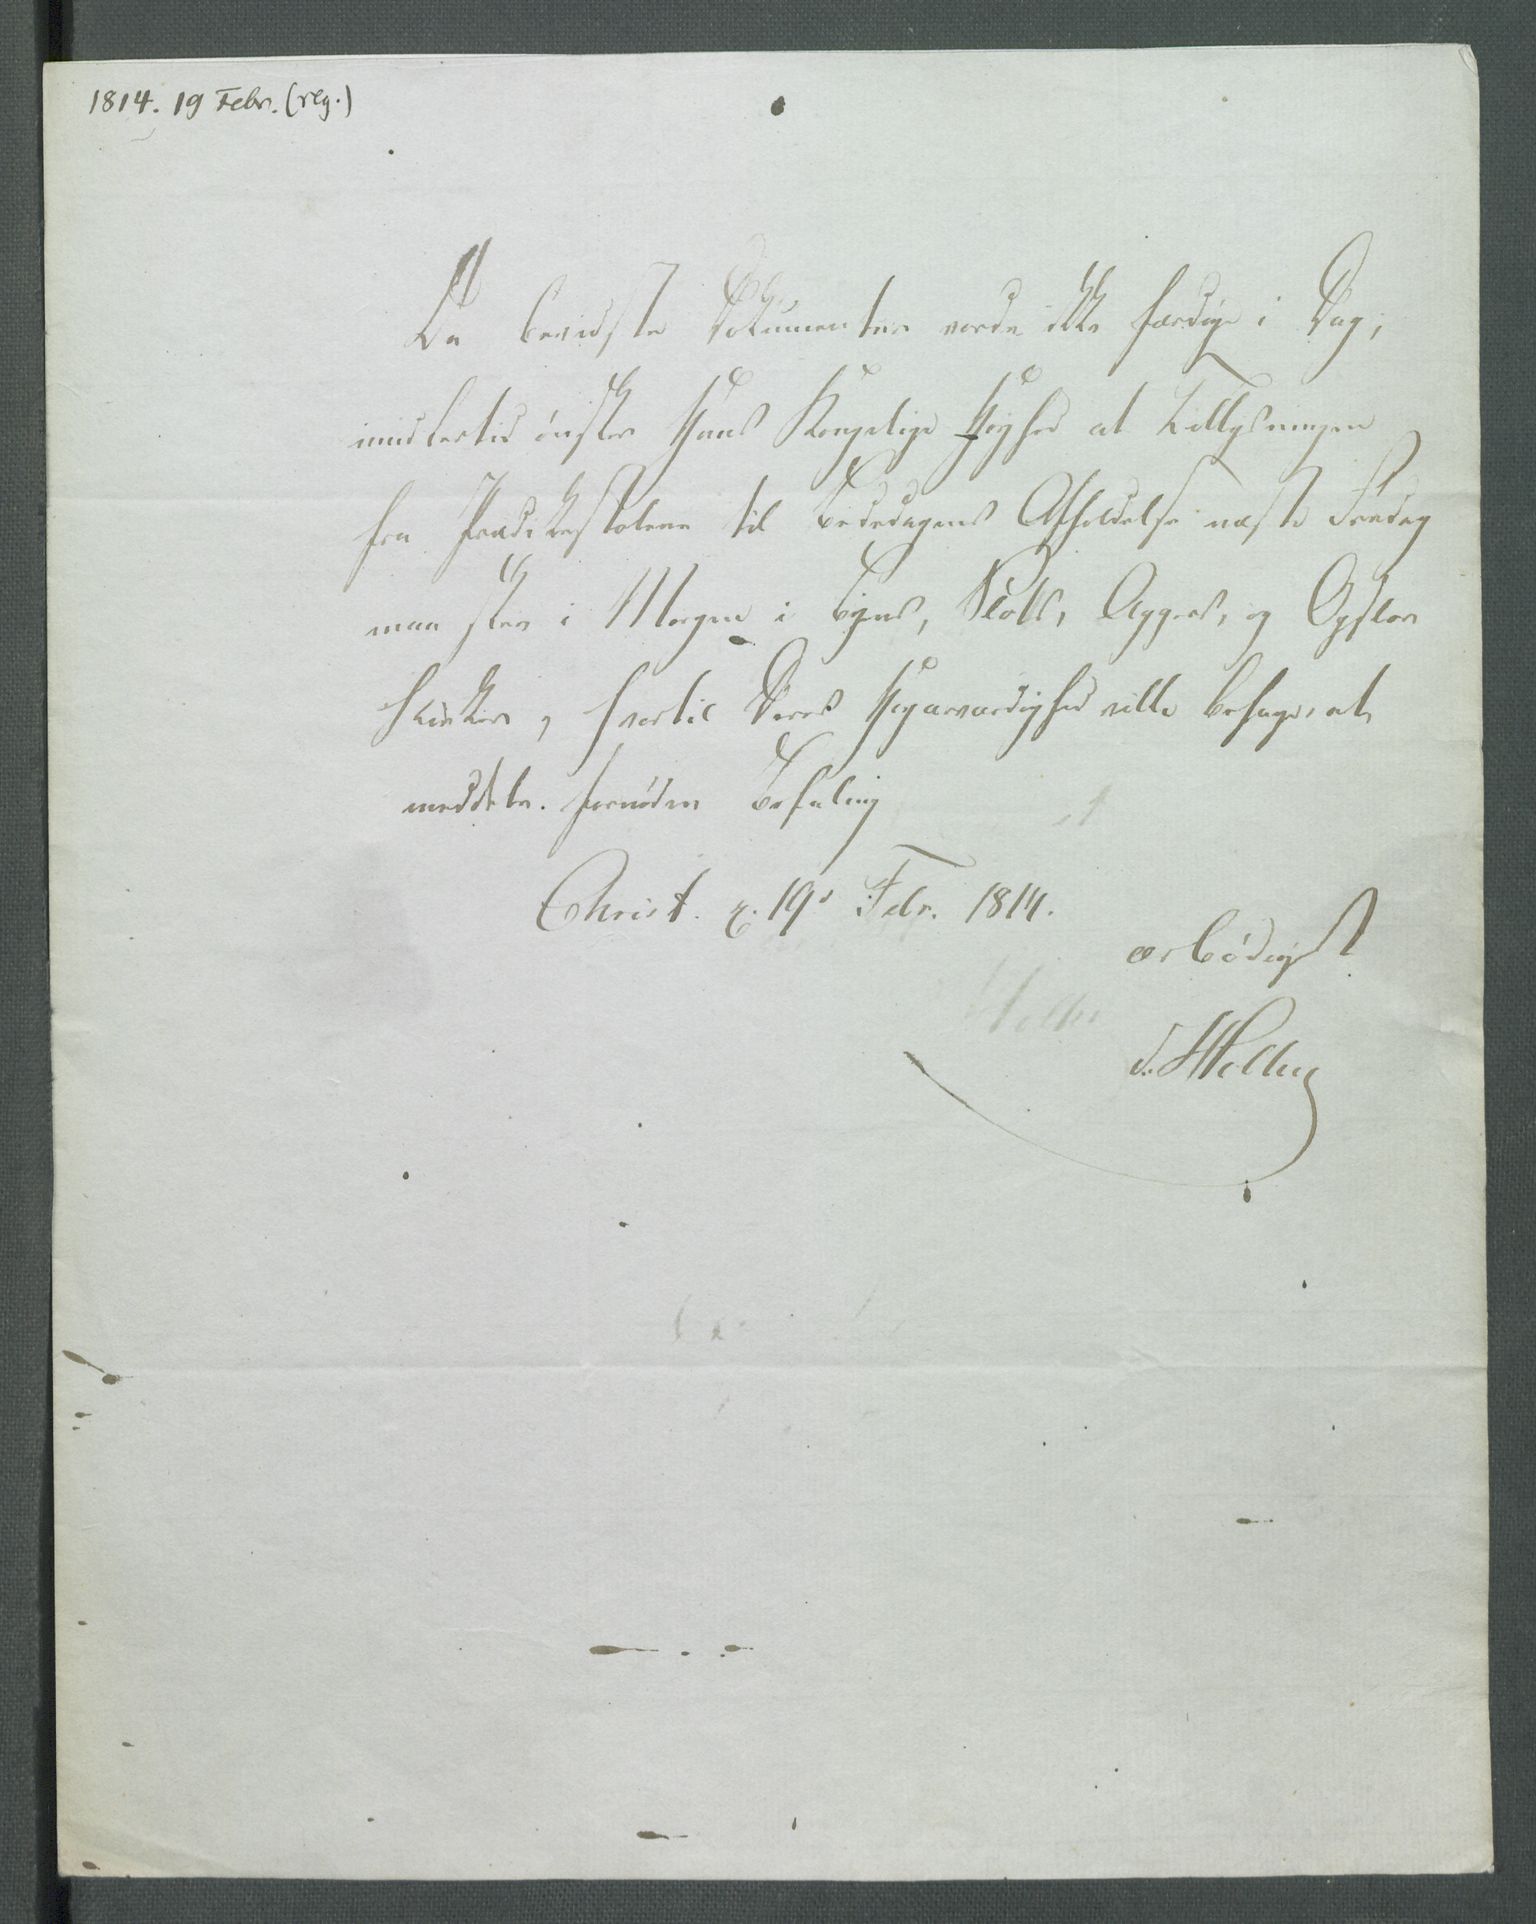 1814. 19 Febr. (reg.)
De bevidste Dokumenter vorde ikke færdige i Dag,
imidlertid ønsker Hans Kongelige Høyhed at Tillysningen
fra Prædikestolene til Bededagens Afholdelse næste Fredag
maa skee i Morgen i Byens, Slots, Aggers, og Opsloe
Kirker, hvortil Deres Høyærværdighed ville behage at
meddele fornøden Befaling
Christ. d. 19d Febr. 1814.
ærbødigst